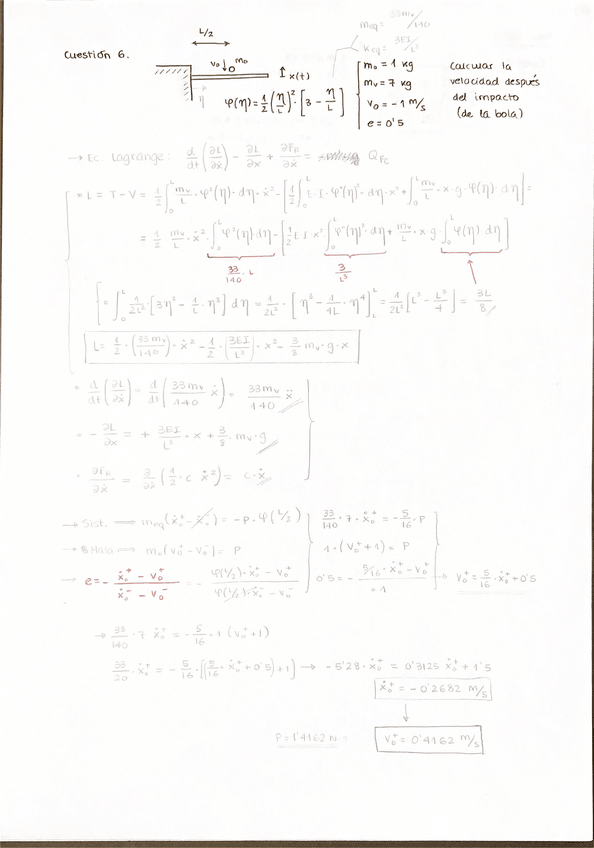 meq = 33mv/140
Keq = 3EI/L³
Cuestión 6.
L/2
v₀ ↓ m₀
↕ x(t)
η
φ(η) = 1/2 (η/L)² · [3 - η/L]
m₀ = 1 kg
mv = 7 kg
v₀ = -1 m/s
e = 0'5
Calcular la
velocidad después
del impacto
(de la bola)
→ Ec. Lagrange: d/dt (∂L/∂ẋ) - ∂L/∂x + ∂FR/∂ẋ = QFc
* L = T - V = 1/2 ∫₀ᴸ mv/L · φ²(η) · dη · ẋ² - [1/2 ∫₀ᴸ E·I·φ''(η)² · dη · x² + ∫₀ᴸ mv/L · x · g · φ(η) · dη] =
= 1/2 · mv/L · ẋ² · ∫₀ᴸ φ²(η) · dη - [1/2 E·I·x² ∫₀ᴸ φ''(η)² · dη + mv/L · x · g · ∫₀ᴸ φ(η) dη]
33/140 · L
3/L³
{ = ∫₀ᴸ 1/2L² · [3η² - 1/L · η³] dη = 1/2L² · [η³ - 1/4L · η⁴]₀ᴸ = 1/2L² [L³ - L³/4] = 3L/8
L = 1/2 · (33mv/140) · ẋ² - 1/2 · (3EI/L³) · x² - 3/8 mv · g · x
* d/dt (∂L/∂ẋ) = d/dt (33mv/140 ẋ) = 33mv/140 ẍ
* - ∂L/∂x = + 3EI/L³ · x + 3/8 · mv · g
* ∂FR/∂ẋ = ∂/∂ẋ (1/2 · c ẋ²) = c · ẋ
→ Sist. ⟹ meq (ẋ₀⁺ - ẋ₀⁻) = -P · φ(L/2)
33/140 · 7 · ẋ₀⁺ = -5/16 · P
→ Bola ⟹ m₀ (v₀⁺ - v₀⁻) = P
1 · (v₀⁺ + 1) = P
→ e = - ẋ₀⁺ - v₀⁺/ẋ₀⁻ - v₀⁻ = - φ(L/2) · ẋ₀⁺ - v₀⁺/φ(L/2) · ẋ₀⁻ - v₀⁻
0'5 = - 5/16 · ẋ₀⁺ - v₀⁺/+1 → v₀⁺ = 5/16 · ẋ₀⁺ + 0'5
→ 33/140 · 7 ẋ₀⁺ = - 5/16 · 1 (v₀⁺ + 1)
33/20 · ẋ₀⁺ = - 5/16 · [(5/16 · ẋ₀⁺ + 0'5) + 1] → -5'28 · ẋ₀⁺ = 0'3125 ẋ₀⁺ + 1'5
ẋ₀⁺ = -0'2682 m/s
P = 1'4162
v₀⁺ = 0'4162 m/s